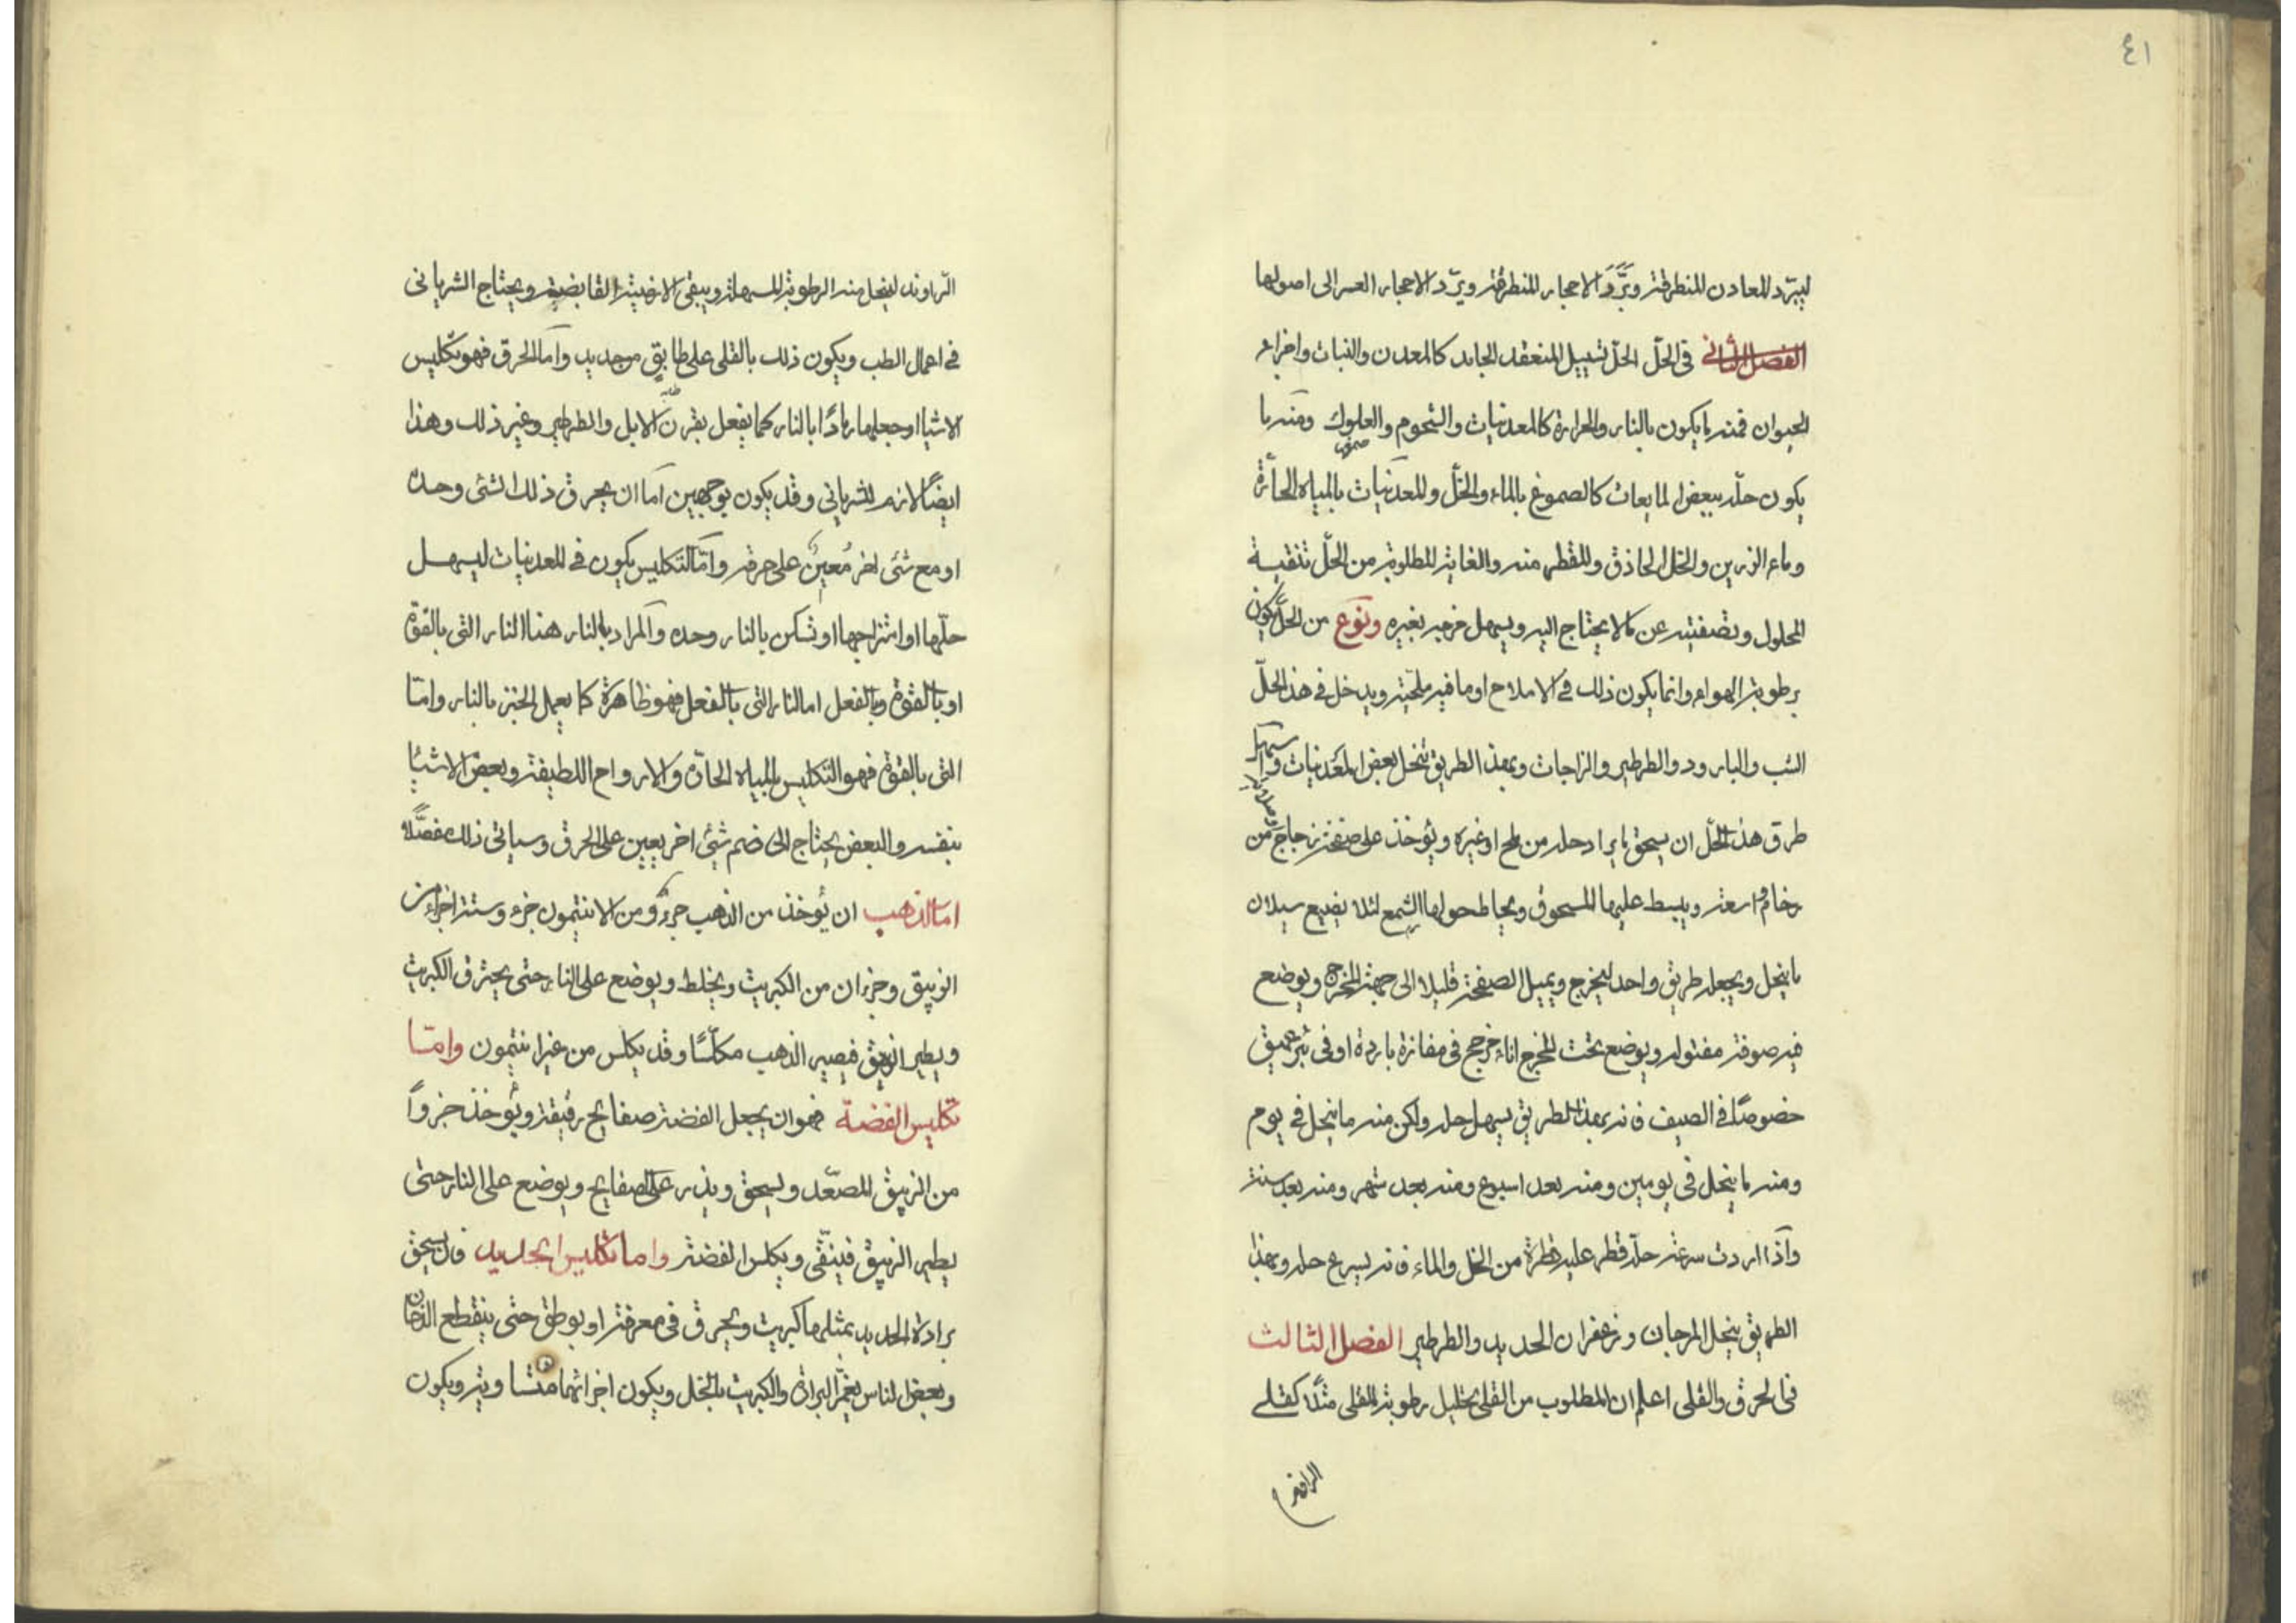 ٤١
ليبرّد المعادن المنطرقة ويَرَّدَ الاحجار المنطرقة ويرّد الاحجار العسر الى اصولها
الفصل الثاني في الحلّ الحلّ تسييل المنعقد الجامد كالمعدن والنبات واجزاء
الحيوان فمنه ما يكون بالنار والحرارة كالمعدنيات والشحوم والعلوك ومنه ما
صموغ
يكون حلّه ببعض المايعات كالصموغ بالماء والخلّ والمعدنيات بالمياه الحادّة
وماء الزرين والخل الحاذق والمقطر منه والغاية المطلوبة من الحلّ تنقية
المحلول وتصفيته عن ما لا يحتاج اليه ويسهل مزجه بغيره ونوع من الحلّ يكون
برطوبة الهواء وانما يكون ذلك في الاملاح او ما فيه ملحية ويدخل في هذا الحلّ
الشب والبارود والطرطير والزاجات وبهذا الطريق تنحل بعض المعدنيات و
طرق هذا الحلّ ان يسحق ما يراد حله من ملح او غيره ويُوخذ على صفحة زجاج من
رخام واسعة ويبسط عليها المسحوق ويحاط حولها الشمع لئلا يضيع سيلان
ما ينحل ويجعل طريق واحد ليخرج ويميل الصفحة قليلا الى جهة المخرج ويوضع
فيه صوفة مفتولة ويوضع تحت المخرج اناء في مفازة باردة او في بئر عميق
خصوصًا في الصيف فانه بهذا الطريق يسهل حله ولكن منه ما ينحل في يوم
ومنه ما ينحل في يومين ومنه بعد اسبوع ومنه بعد شهر ومنه بعد سنة
واذا اردت سرعة حلّه قطر عليه قطرة من الخل والماء فانه يسرع حله وبهذا
الطريق ينحل المرجان وزعفران الحديد والطرطير الفصل الثالث
في الحرق والقلى اعلم ان المطلوب من القلى تحليل رطوبة المقلى مثلًا كقلى
الراوند
الرّاوند لينحل منه الرطوبة المسهلة ويبقى الارضية القابضة ويحتاج الشرياني
في اعمال الطب ويكون ذلك بالقلى على طابقٍ من حديد وامّا الحرق فهو تكليس
الاشيا او جعلها رمادًا بالنار كما يفعل بقرن الايل والطرطير وغير ذلك وهذا
ايضًا لازم للشرياني وقد يكون بوجهين امّا ان يحرق ذلك الشئ وحده
او مع شئ اخر مُعين على حرقه وامّا التكليس يكون في المعدنيات ليسهل
حلّها او امتزاجها او تسكن بالنار وحده والمراد بالنار هنا النار التي بالقوّة
او بالقوة وبالفعل اما النار التي بالفعل فهو ظاهرة كما يعمل الخبز بالنار وامّا
التي بالقوة فهو التكليس بالمياه الحادّة والارواح اللطيفة وبعض الاشيا
بنفسه والبعض يحتاج الى ضم شئ اخر يعين على الحرق وسياتي ذلك مفصّلا
اما الذهب ان يُوخذ من الذهب جزء ومن الانتيمون جزء وستة اجزاء من
الزيبق وجزءان من الكبريت ويخلط ويوضع على النار حتى يحترق الكبريت
ويطير الزيبق فيصير الذهب مكلّسًا وقد يكلس من غير انتيمون وامّا
تكليس الفضة فهو ان يجعل الفضة صفايح رقيقة ويُوخذ جزوًا
من الزيبق المصعّد ويسحق ويذر على الصفايح ويوضع على النار حتى
يطير الزيبق فينقّى ويكلس الفضة واما تكليس الحديد فان يسحق
برادة الحديد بمثلها كبريت ويحرق في مغرفة او بوطق حتى ينقطع الدخان
وبعض الناس يغمر البرادة والكبريت بالخل ويكون اجزائهما متساوية ويكون